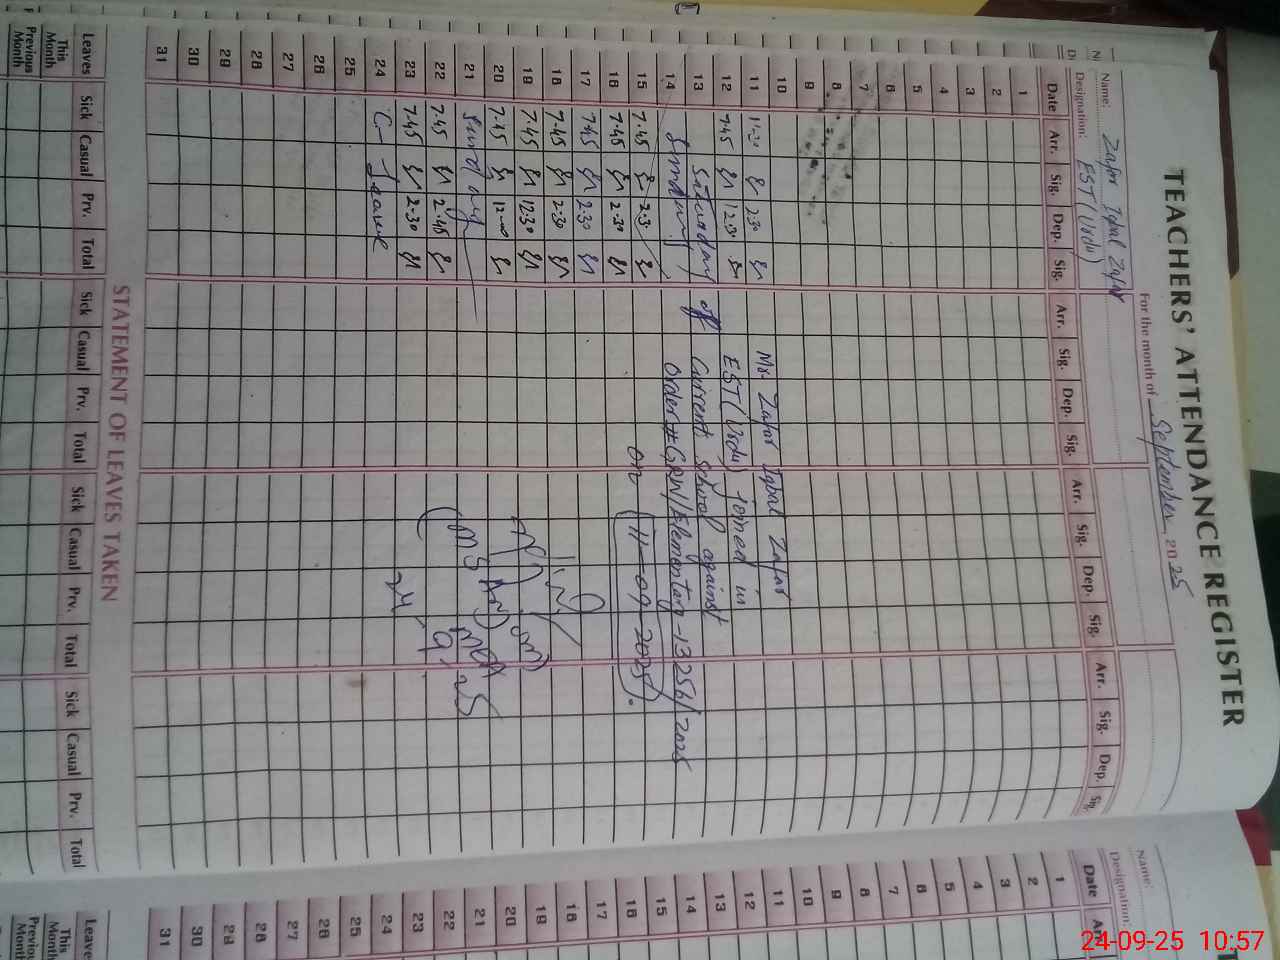 TEACHERS' ATTENDANCE REGISTER
For the month of September 2025
Name: Zafar Iqbal Zafar
Designation: EST (Urdu)
Date Arr. Sig. Dep. Sig. Arr. Sig. Dep. Sig. Arr. Sig. Dep. Sig. Arr. Sig. Dep. Sig.
1
2
3
4
5
6
7
8
9
10
11 11-30 2:30
12 7.45 12:30
13 Saturday off
14 Sunday
15 7.45 2.30
16 7.45 2.30
17 7.45 2.30
18 7.45 2.30
19 7.45 12.30
20 7.45 12-00
21 Sunday
22 7.45 2.45
23 7.45 2.30
24 C- Leave
25
26
27
28
29
30
31
Mr. Zafar Iqbal Zafar
EST (Urdu) joined in
Current School against
Order # GRW/Elementary-13256/2025
on (11-09-2025).
24.9.25
STATEMENT OF LEAVES TAKEN
Leaves Sick Casual Prv. Total Sick Casual Prv. Total Sick Casual Prv. Total Sick Casual Prv. Total
This Month
Previous Month
Name:
Designation:
Date Arr.
1
2
3
4
5
6
7
8
9
10
11
12
13
14
15
16
17
18
19
20
21
22
23
24
25
26
27
28
29
30
31
Leaves
This Month
Previous Month
24-09-25 10:57